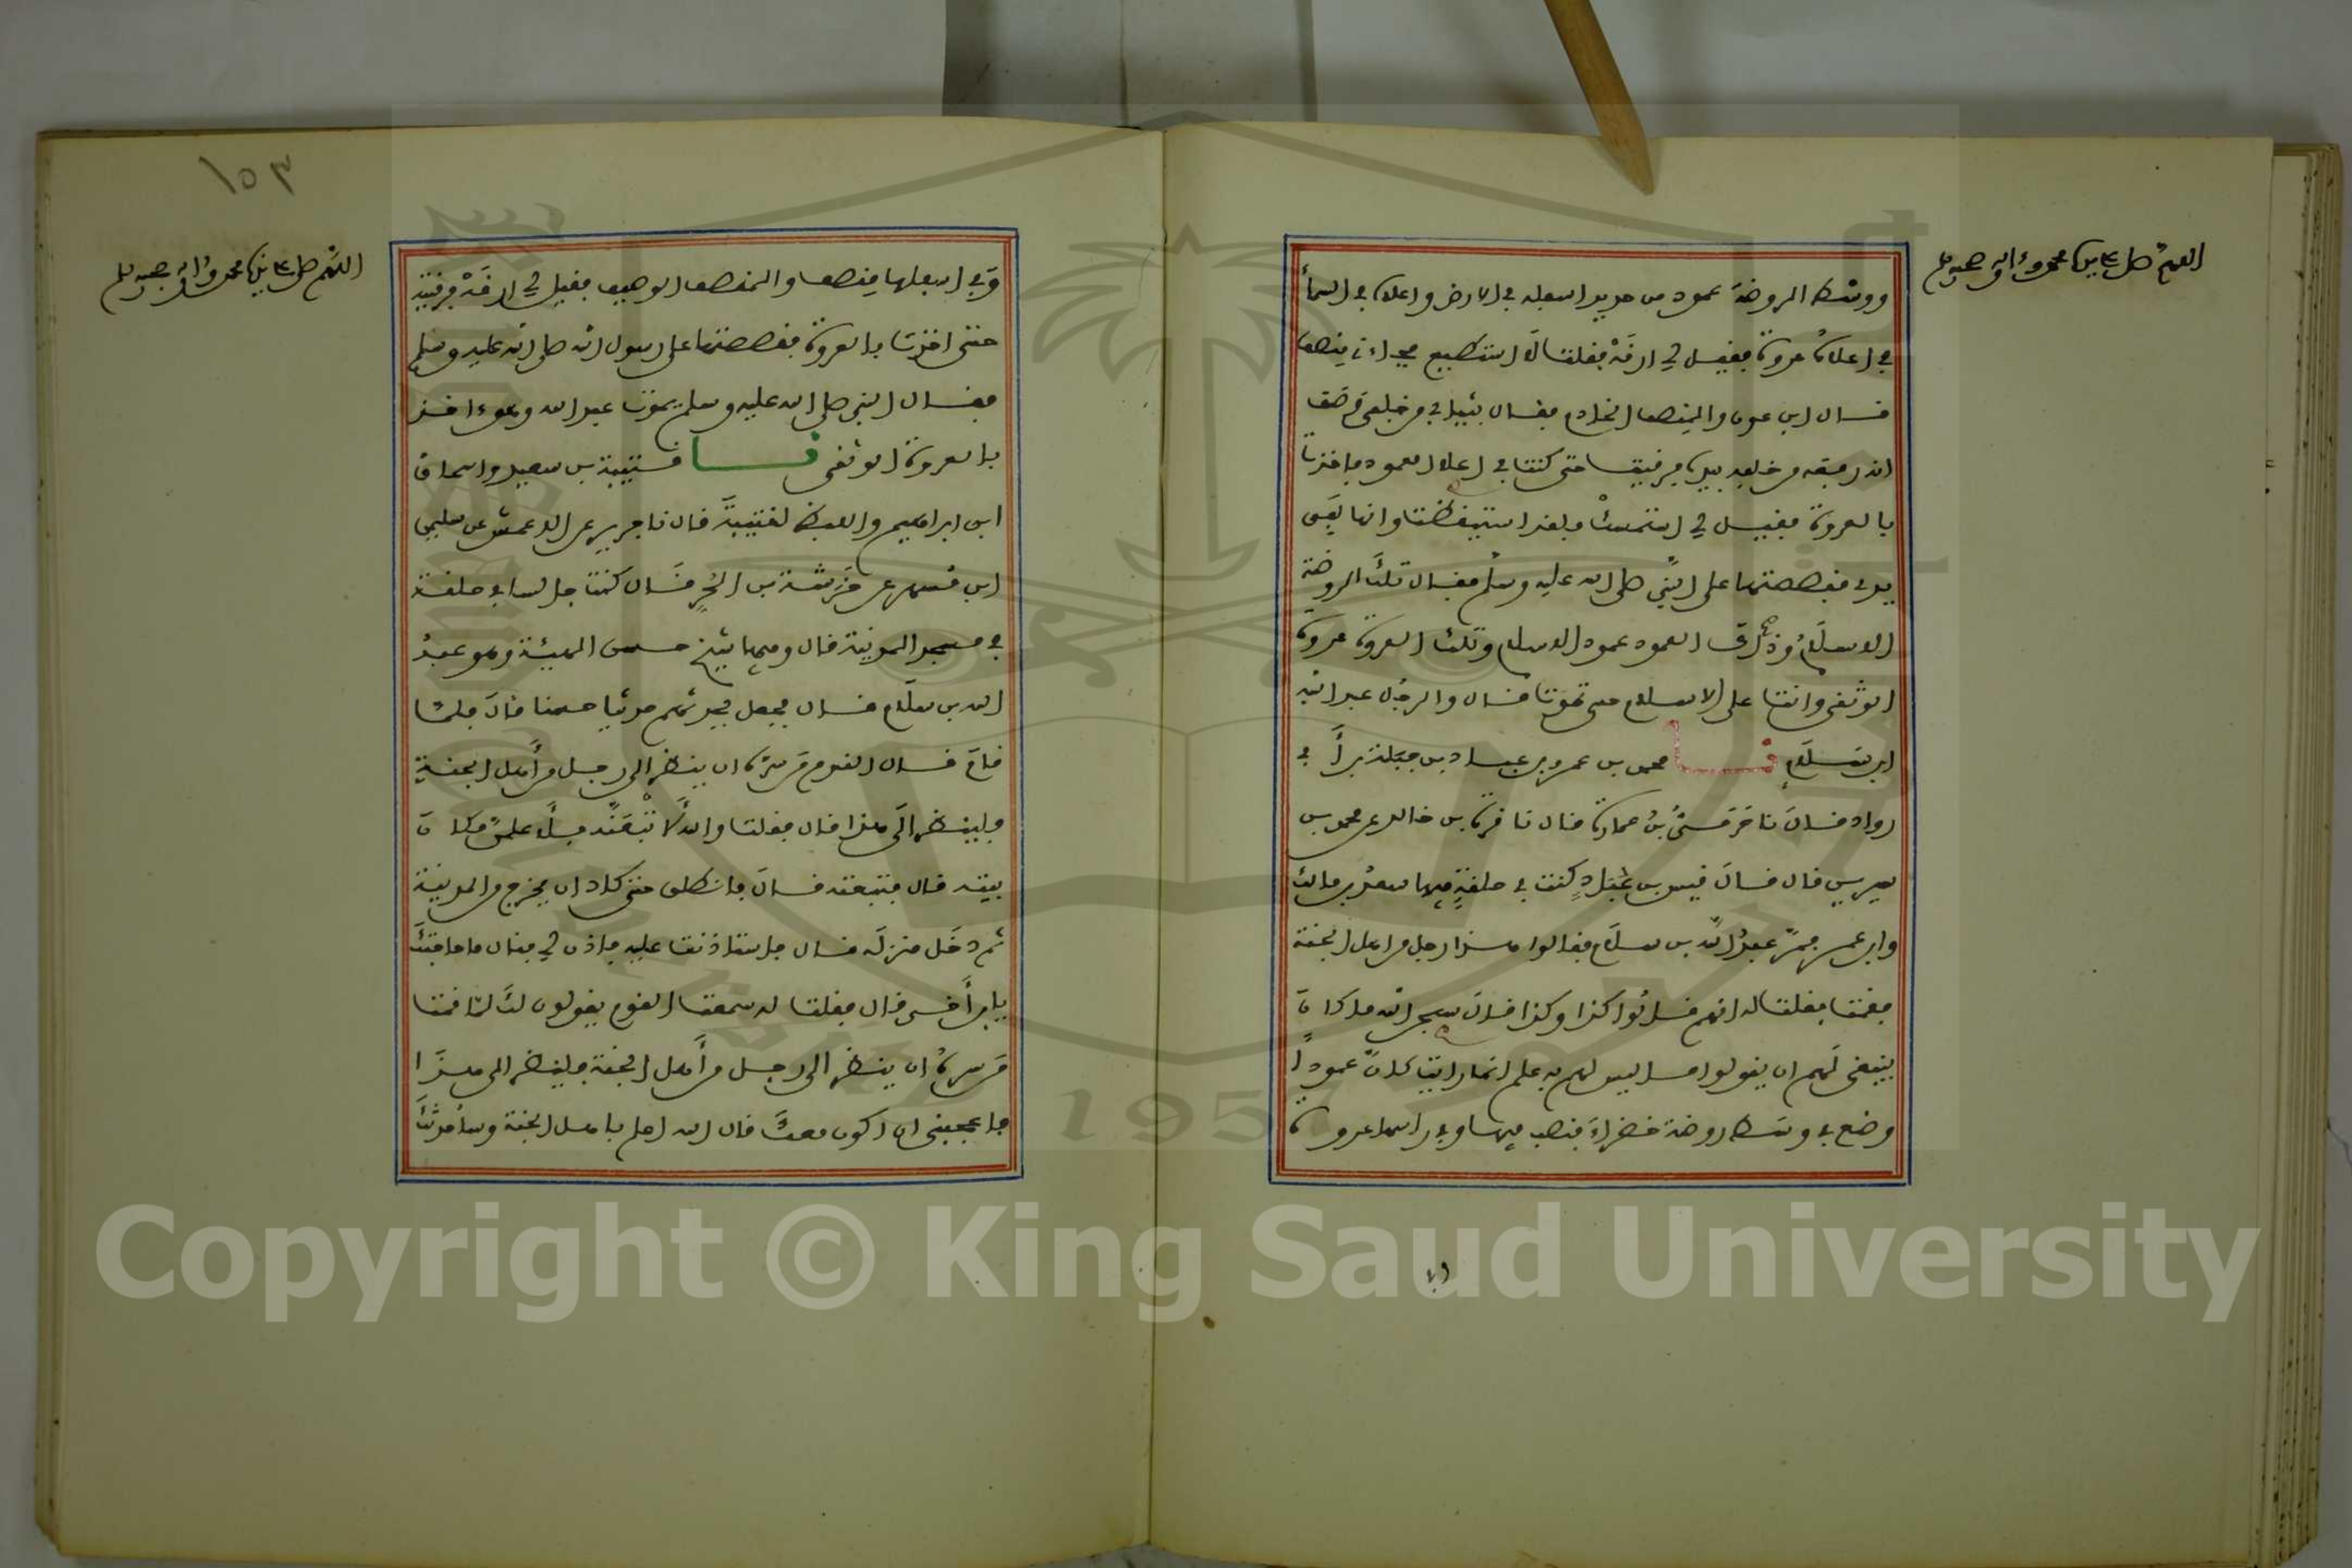 اللهم صل على نبينا محمد وءاله وصحبه وسلم
ووسْط الروضة عمود من حديد اسفله في الارض واعلاه في السمأ
في اعلاه عروة فقيل لي ارقَهْ فقلت لا استطيع فجاءني منصف
قال ابن عون والمنصف الخادم فقال بثيابي من خلفي وَصَف
انه رفعه من خلفه بيده فرقيت حتى كنت في اعلا العمود فاخذت
بالعروة فقيل لي استمسكْ ولقد استيقظت وانها لفي
يدي فقصصتها على النبي صلى الله عليه وسلم فقال تلك الروضة
الاسلام وذلك العمود عمود الاسلام وتلك العروة عروة
الوثقى وانت على الاسلام حتى تموت قال والرجل عبد الله
ابن سلام نا محمد بن عمرو بن عباد بن جبلة بن أبي
رواد قال نا حَرَمىّ بنُ عمارة قال نا قرة بن خالد عن محمد بن
سيرين قال قال قيس بن عُبَادٍ كنت في حلقةٍ فيها سعدُ بن مالك
وابن عمر فمرّ عبدُ الله بن سلام فقالوا هذا رجل من اهل الجنة
فقمت فقلت له انهم قالوا كذا وكذا قال سبحن الله ما كان
ينبغي لهم ان يقولوا ما ليس لهم به علم انما رايت كان عموداً
وضع في وسط روضة خضراءَ فنصب فيها وفي راسها عروة
اللهم صل على نبينا محمد وءاله وصحبه وسلم
١٥٣
وَفي اسفلها مِنصف والمنصف الوصيف فقيل لي ارقَهْ فرقيته
حتى اخذت بالعروة فقصصتها على رسول الله صلى الله عليه وسلم
فقال النبي صلى الله عليه وسلم يموت عبد الله وهوءاخذ
بالعروة الوثقى نا قتيبة بن سعيد واسحاق
ابن ابراهيم واللفظ لقتيبة قال نا جرير عن الاعمش عن سليمن
ابن مسهر عن خَرَشَة بن الحُرِّ قال كنت جالسا في حلقة
في مسجد المدينة قال وفيها شيخ حسن الهيئة وهو عبدُ
الله بن سلام قال فجعل يحدثهم حديثا حسنا قال فلمّا
قام قال القوم مَن سره ان ينظر الى رجل من أهل الجنةِ
فلينظر الى هذا قال فقلت والله لأ تْبَعَنَّه فلأعلمنّ مكان
بيته قال فتبعته قال فانطلق حتى كاد ان يخرج من المدينة
ثم دخل منزله قال فاستاذنت عليه فاذن لي فقال ما حاجتك
يابن أخي قال فقلت له سمعت القوم يقولون لك لمّا قمت
مَن سرهُ ان ينظر الى رجل من أهل الجنة فلينظر الى هذا
فاعجبني ان اكون معك قال الله اعلم باهل الجنة وسأحدثك